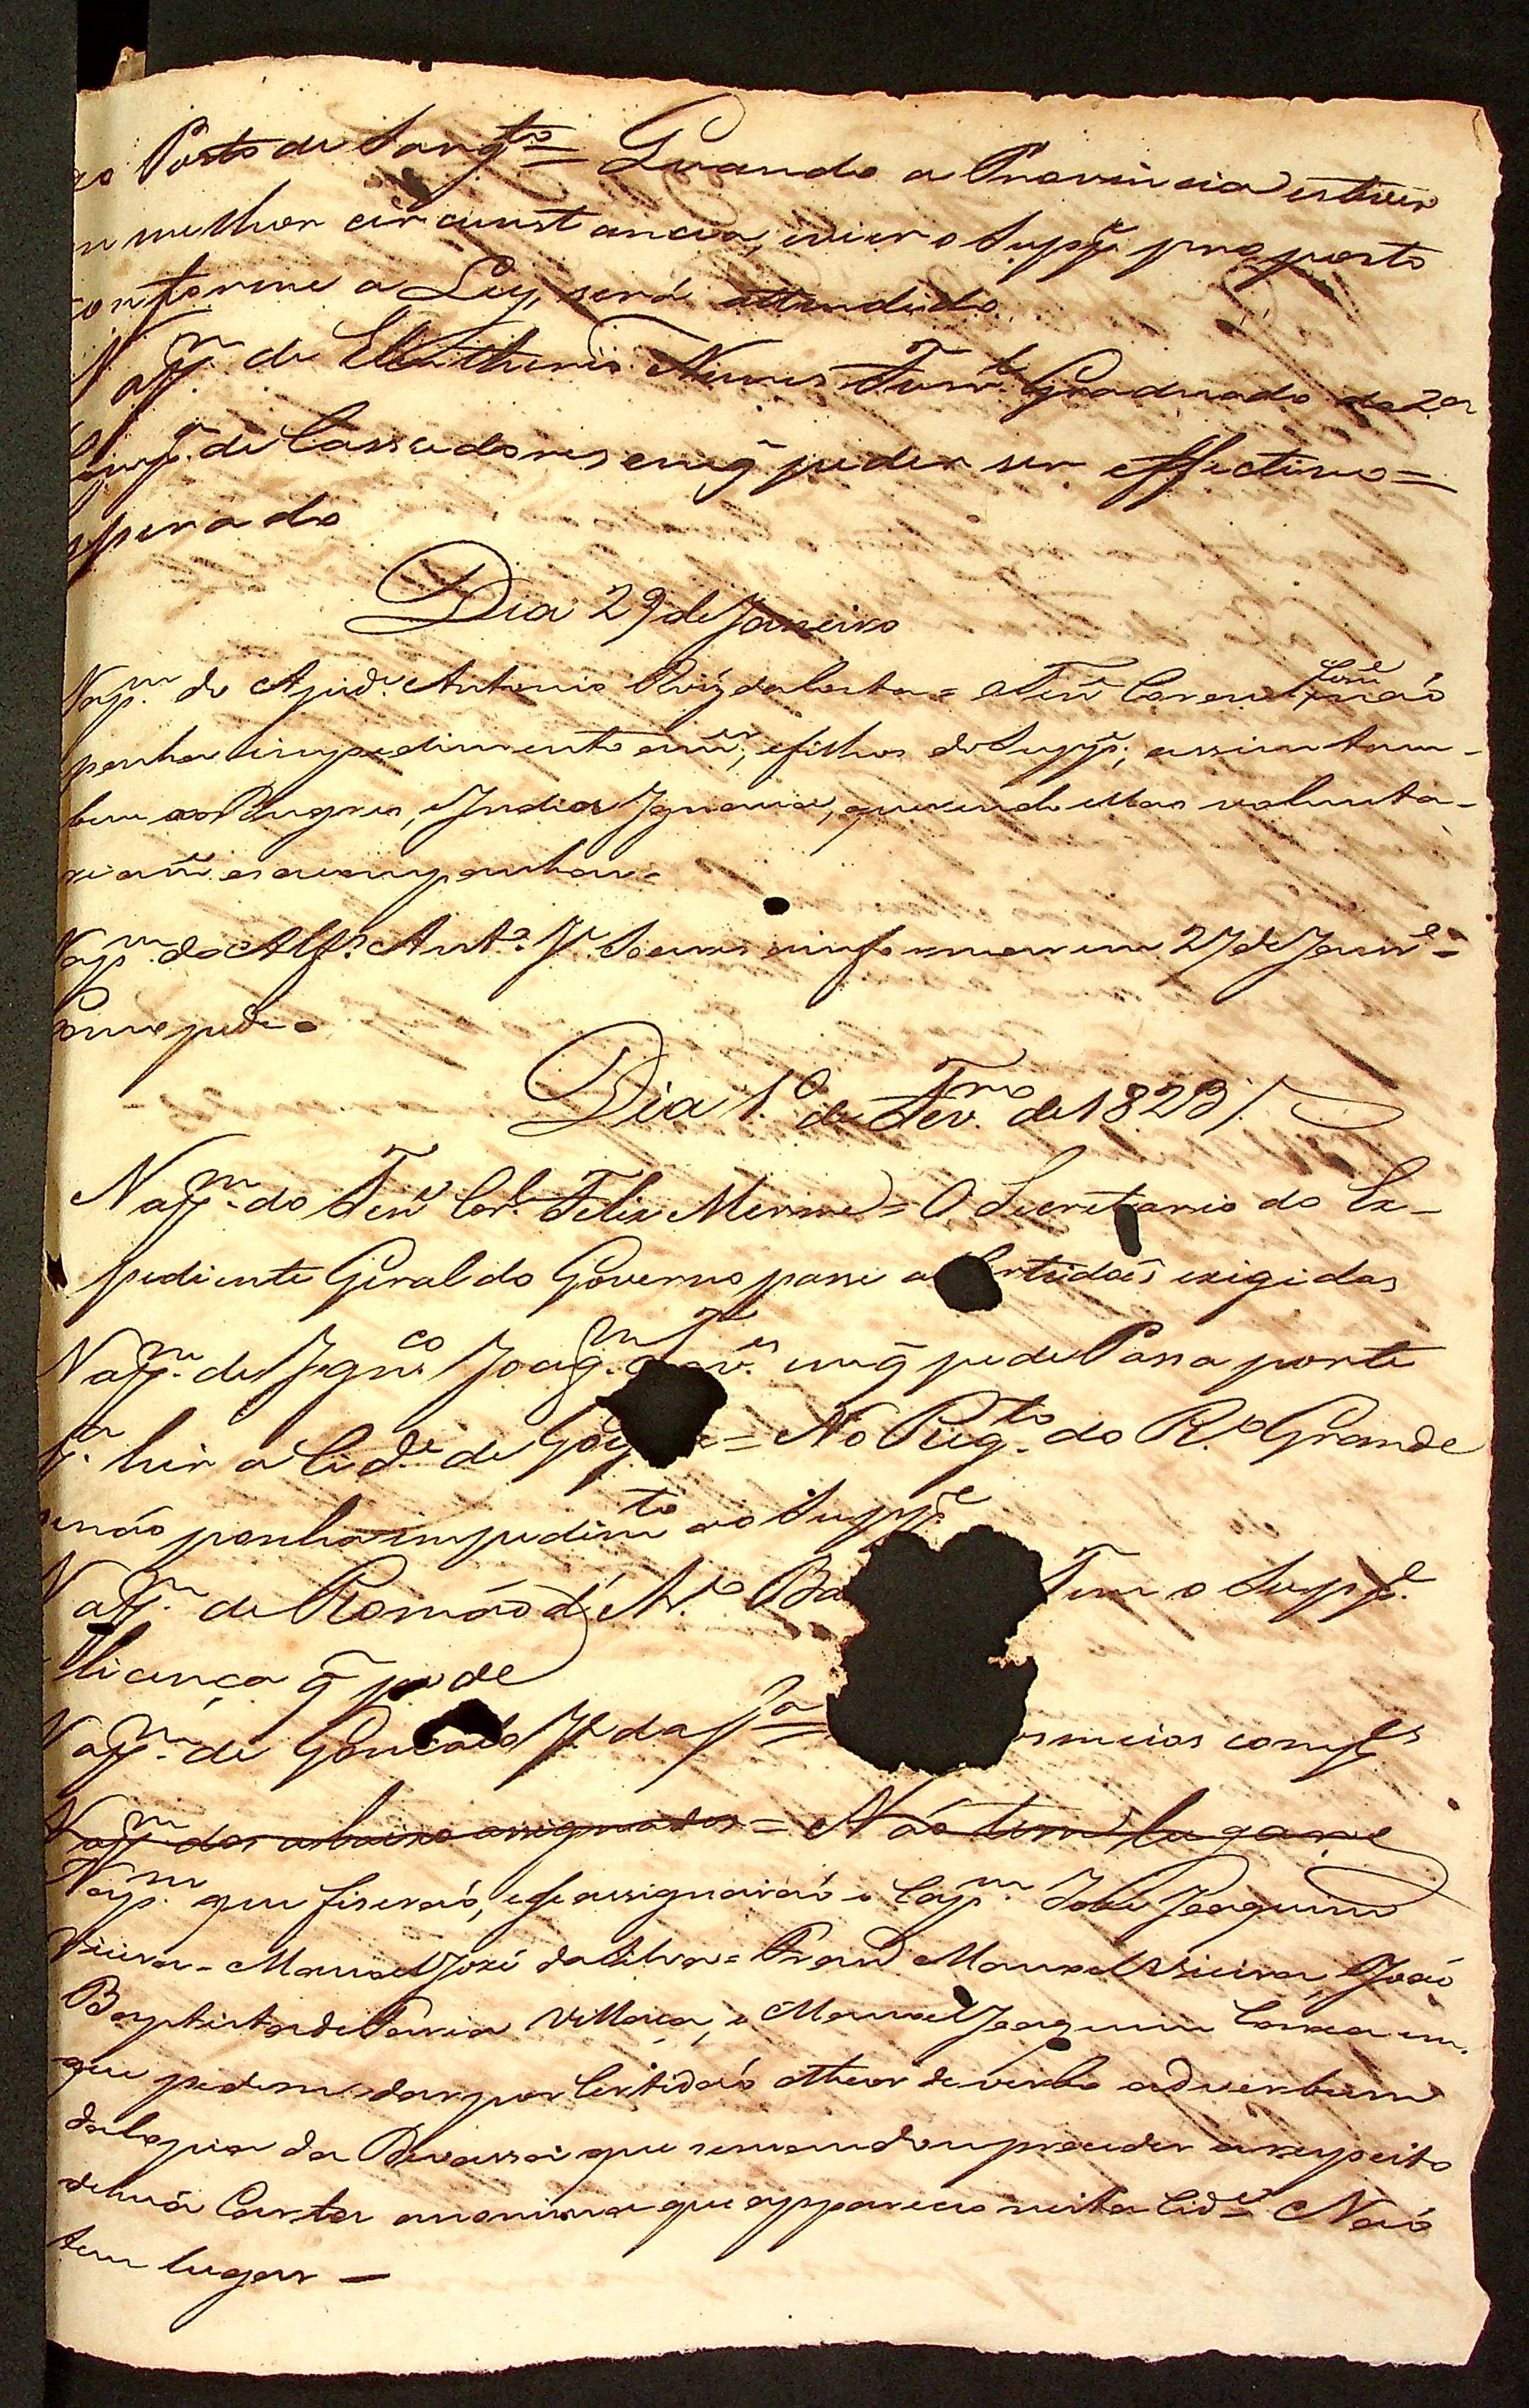 ao Posto de Sarg.to = Quando a Provincia estiver
em melhor circunstancia, e vier o Supp.e proposto
conforme a Ley, será attendido.
N app.m de Eleutherio Nunes Furr.l Graduado da 2.a
Comp.a de Cassadores em q̃ pede ser effectivo =
esperado
Dia 29 de Janeiro
N ap.m do Ajud.e Antonio Roiz da Costa = o Ten.e Coronel Com.e não
ponha impedimento a m.er, e filhos do Supp.e; assim tam-
bem aos Bugres, e India Ignacia, querendo ellas volunta-
riam.e os acompanhar =
N ap.m do Alf.s Ant.o J.e Soares e informe em 27 de Janr.o =
Como pede =
Dia 1.o de Fev.ro de 1823 /.
N app.m do Ten.e Cor.l Felix Merme = O Secretario do Ex-
pediente Geral do Governo passe a Certidoẽs exigidas
N app.m de Ign.co Joaq.m em q̃ pede Passaporte
p.a hir a Cid.e de Goy = No Reg.to do R.o Grande
se não ponha impedim.to ao Supp.e
N app.m de Romão d'Ar.o Ba Tem o Supp.e
a licença q̃ pede
N app.m de Goncalo J.e da S.a = os meios comp.es
N app.m dos abaixo assignados = Não tem lugar
N ap.m que fiserão, e se assignarão o Cap.m José Joaquim
Vieira = Manoel José da Silva = Fran.co Manoel Vieira, João
Baptista de Faria Villaça, e Manoel Joaquim Correa em
que pedem dar por Certidão o theor de verbo adverbum
da Copia da Devassa que se mandou proceder a respeito
de huã Carta anonima que appareceo nesta Cid.e = Não
tem lugar =